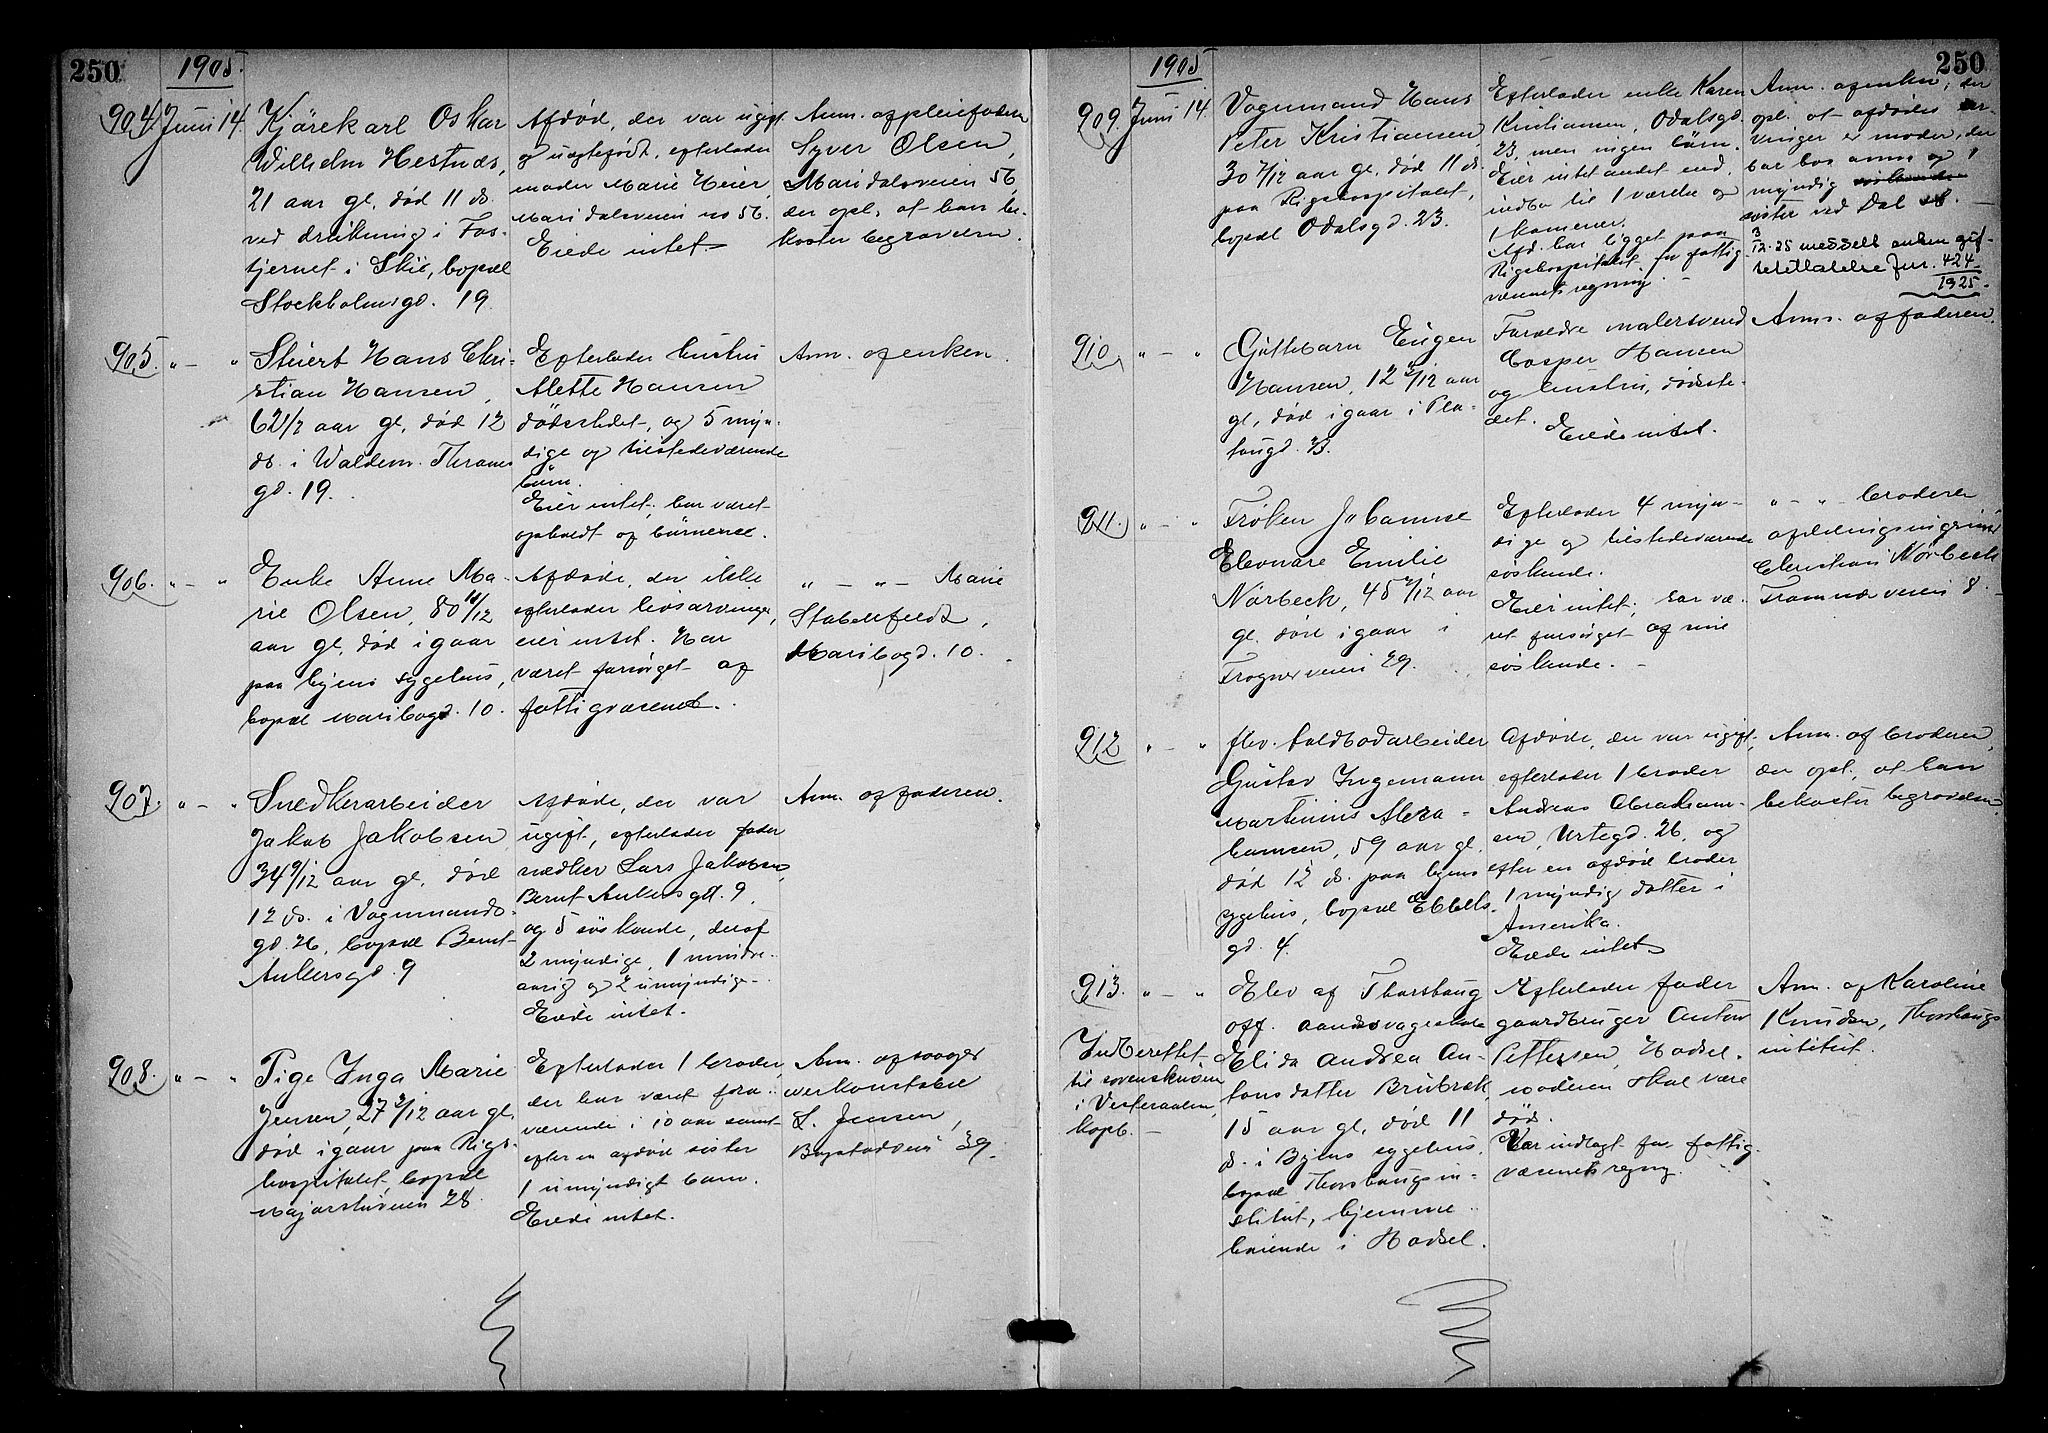 250
1905.
904. Juni 14.
Kjörekarl Oskar
Wilhelm Hestnæs,
21 aar gl. død 11 ds.
ved drukning i Fos-
tjernet i Skie, bopæl
Stockholmsgd. 19.
Afdød, der var ugift
og uægtefødt, efterlader
moder Marie Heier,
Maridalsveien no 56.
Eiede intet.
Anm. af pleiefaderen
Syver Olsen,
Maridalsveien 56,
der opl. at han be-
koster begravelsen.
905. " — "
Hans Chri-
stian Hansen,
62 1/2 aar gl. død 12
ds. i Waldem. Thranes
gd. 19.
Efterlader hustru
Alette Hansen
dødsstedet, og 5 myn-
dige og tilstedeværende
börn.
Eier intet, har været
opholdt af börnene.
Anm. af enken.
906. " — "
Enke Anne Ma-
rie Olsen, 80 11/12
aar gl. død igaar
paa byens sygehus,
bopæl Maribogd. 10.
Afdøde, der ikke
efterlader livsarvinger,
eier intet. Har
været forsörget af
fattigvæsenet.
" — " — Marie
Stabelfeldt,
Maribogd. 10.
907. " — "
Snedkerarbeider
Jakob Jakobsen
34 9/12 aar gl. død
12 ds. i Vognmands-
gd. 26, bopæl Bernt
Ankersgd. 9
Afdøde, der var
ugift, efterlader fader
snedker Lars Jakobsen,
Bernt Ankersgd. 9,
og 5 söskende, deraf
2 myndige, 1 mindre-
aarig og 2 umyndige.
Eiede intet.
Anm. af faderen.
908. " — "
Pige Inga Marie
Jensen, 27 3/12 aar gl.
død igaar paa Rigs-
hospitalet, bopæl
Majorstuveien 28.
Efterlader 1 broder,
der har været fra-
værende i 10 aar samt
efter en afdød söster
1 umyndigt barn.
Eiede intet.
Anm. af svoger
verkonstabel
L. Jensen,
Bogstadveien 39.
1905
250
909. Juni 14.
Vognmand Hans
Peter Kristiansen,
30 7/12 aar gl. død 11 ds.
paa Rigshospitalet,
bopæl Odalsgd. 23.
Efterlader enke Karen
Kristiansen, Odalsgd.
23, men ingen börn.
Eier intet andet end
indbo til 1 værelse og
1 kammer.
Afd. har ligget paa
Rigshospitalet for fattig-
væsenets regning.
Anm. af enken, der
opl. at afdødes ar-
vinger er moder, der
bor hos anm. og 1
myndig
söster ved Dal st.
3/12.25 meddelt enken gif-
tetilladelse Jnr. 424
1925.
910. " — "
Guttebarn Eugen
Hansen, 12 2/12 aar
gl. død igaar i Pla-
tougd. 23.
Forældre malersvend
Casper Hansen
og hustru, dødsste-
det.
Eiede intet.
Anm. af faderen.
911. " — "
Frøken Johanne
Eleonare Emilie
Nörbeck, 45 2/12 aar
gl. død igaar i
Frognerveien 29.
Efterlader 4 myn-
dige og tilstedeværende
söskende.
Eier intet, har væ-
ret forsörget af sine
söskende.
" — " — broderen
afdelingsingeniør
Christian Nörbeck
Framnæsveien 8.
912 " — "
flev. toldbodarbeider
Gustav Ingemann
Martinius Abra-
hamsen, 59 aar gl.
død 12 ds. paa byens
sygehus, bopæl Ebbels-
gd. 4.
Afdøde, der var ugift,
efterlader 1 broder
Andreas Abraham-
sen, Urtegd. 26, og
efter en afdød broder
1 myndig datter i
Amerika.
Eiede intet.
Anm. af broderen,
der opl. at han
bekoster begravelsen.
913. " — "
Indberettet
til sorenskriveren
i Vesteraalen,
kopb.
Elev af Thorshaug
off. aandssvageskole
Elida Andrea An-
tonsdatter Brübræk,
15 aar gl. død 11
ds. i Byens sygehus,
bopæl Thorshaugsin-
stitut, hjemme-
hörende i Hadsel.
Efterlader fader
gaardbruger Anton
Pettersen, Hadsel.
moderen skal være
död.
Var indlagt for fattig-
væsenets regng.
Anm. af Karoline
Knudsen, Thorshaugs
institut.